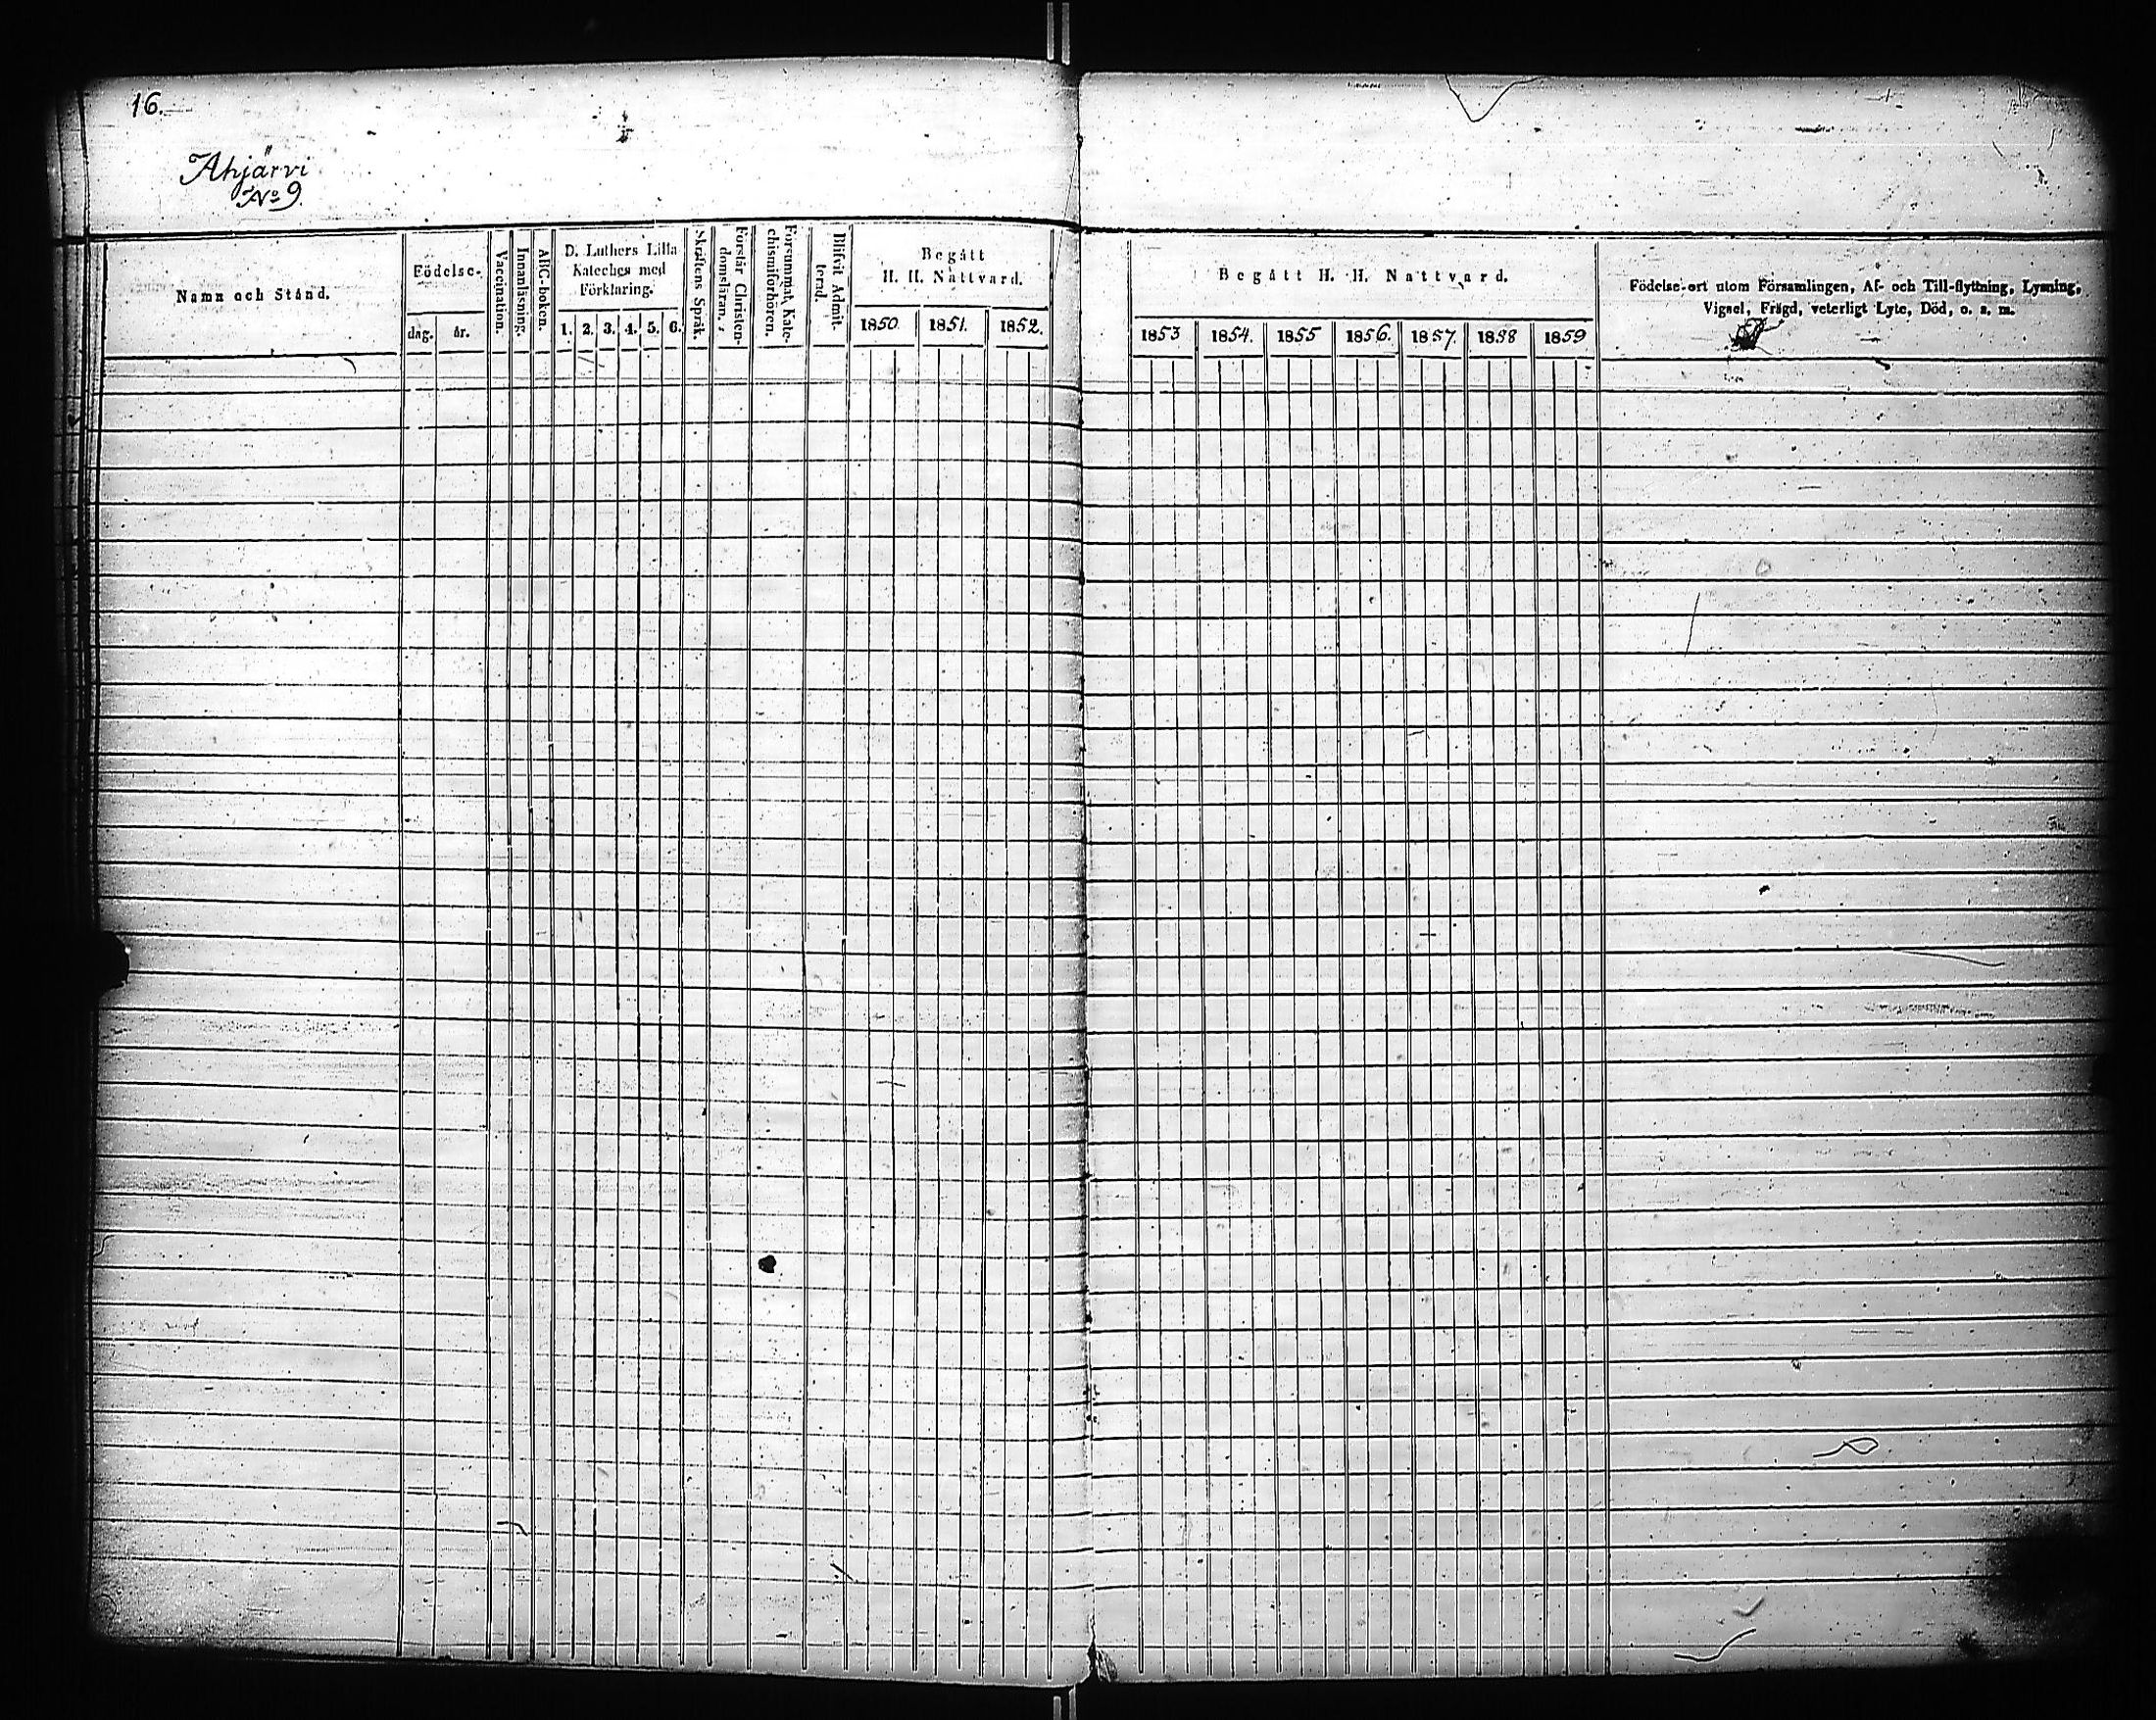 16.
Ahjärvi
No 9.
Namn och Stånd.
Födelse-
dag. år.
Vaccination.
Innanläsning.
ABC-boken.
D. Luthers Lilla
Kateches med
Förklaring.
1. 2. 3. 4. 5. 6.
Skriftens Språk.
Förstår Christen-
domsläran.
Försummat Kate-
chismiförhören.
Blifvit Admit-
terad.
Begått
H. H. Nattvard.
1850. 1851. 1852.
Begått H. H. Nattvard.
1853 1854. 1855 1856. 1857. 1858 1859
Födelse-ort utom Församlingen, Af- och Till-flyttning, Lysning,
Vigsel, Frägd, veterligt Lyte, Död, o. s. m.